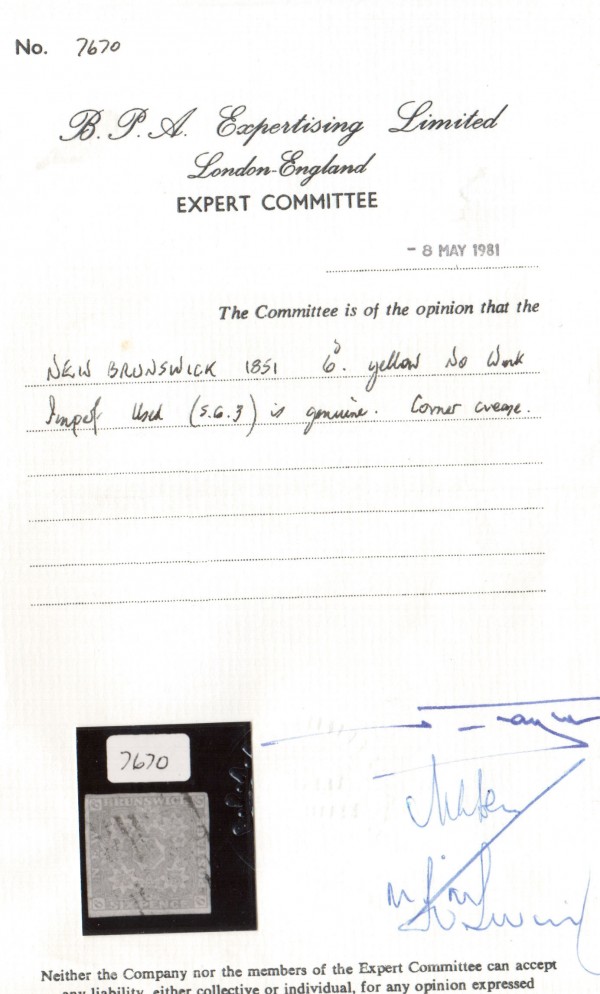 No. 7670
B. P. A. Expertising Limited
London-England
EXPERT COMMITTEE
- 8 MAY 1981
The Committee is of the opinion that the
NEW BRUNSWICK 1851 6d. yellow No Wmk
Imperf Used (S.G.3) is genuine. Corner crease.
7670
BRUNSWICK
SIXPENCE
Neither the Company nor the members of the Expert Committee can accept
any liability, either collective or individual, for any opinion expressed